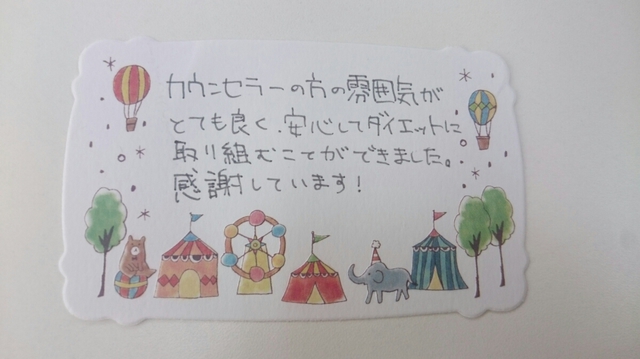 カウンセラーの方の雰囲気が
とても良く、安心してダイエットに
取り組むことができました。
感謝しています!